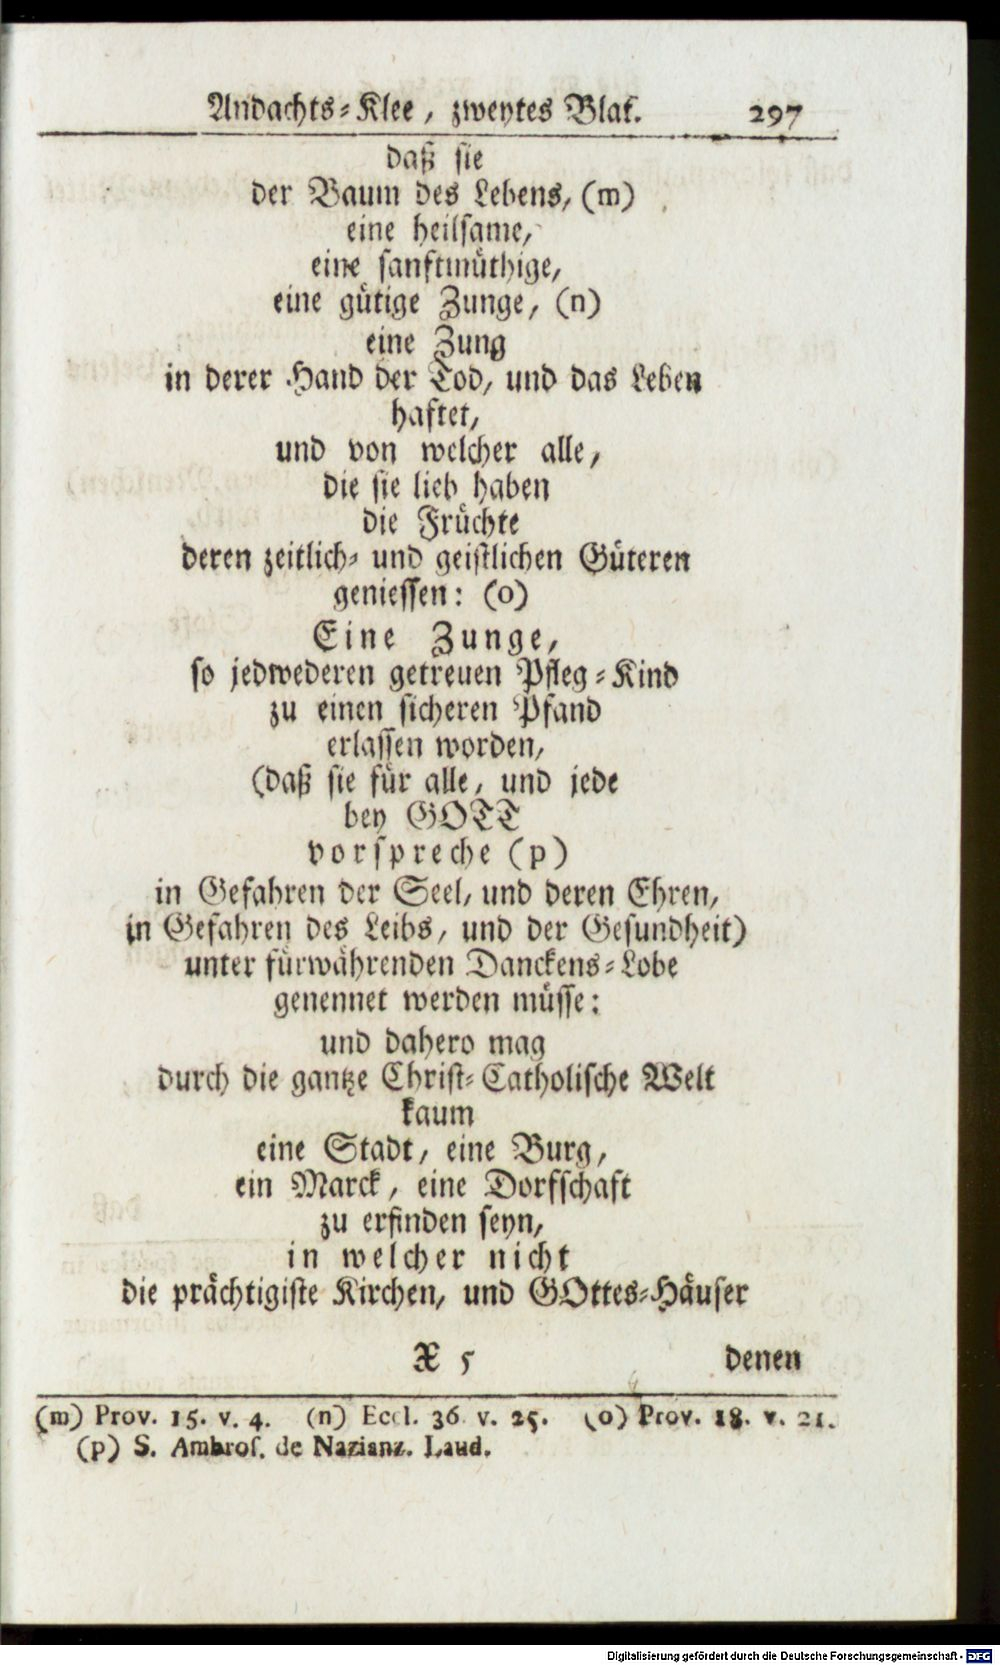 Andachts-Klee, zweytes Blat. 297
daß sie
der Baum des Lebens, (m)
eine heilsame,
eine sanftmüthige,
eine gütige Zunge, (n)
eine Zung
in derer Hand der Tod, und das Leben
haftet,
und von welcher alle,
die sie lieb haben
die Früchte
deren zeitlich- und geistlichen Güteren
geniessen: (o)
Eine Zunge,
so jedwederen getreuen Pfleg-Kind
zu einen sicheren Pfand
erlassen worden,
(daß sie für alle, und jede
bey GOTT
vorspreche (p)
in Gefahren der Seel, und deren Ehren,
in Gefahren des Leibs, und der Gesundheit)
unter fürwährenden Danckens-Lobe
genennet werden müsse:
und dahero mag
durch die gantze Christ-Catholische Welt
kaum
eine Stadt, eine Burg,
ein Marck, eine Dorfschaft
zu erfinden seyn,
in welcher nicht
die prächtigiste Kirchen, und GOttes-Häuser
X 5 denen
(m) Prov. 15. v. 4. (n) Eccl. 36 v. 25. (o) Prov. 18. v. 21.
(p) S. Ambros. de Nazianz. Laud.
Digitalisierung gefördert durch die Deutsche Forschungsgemeinschaft - DFG